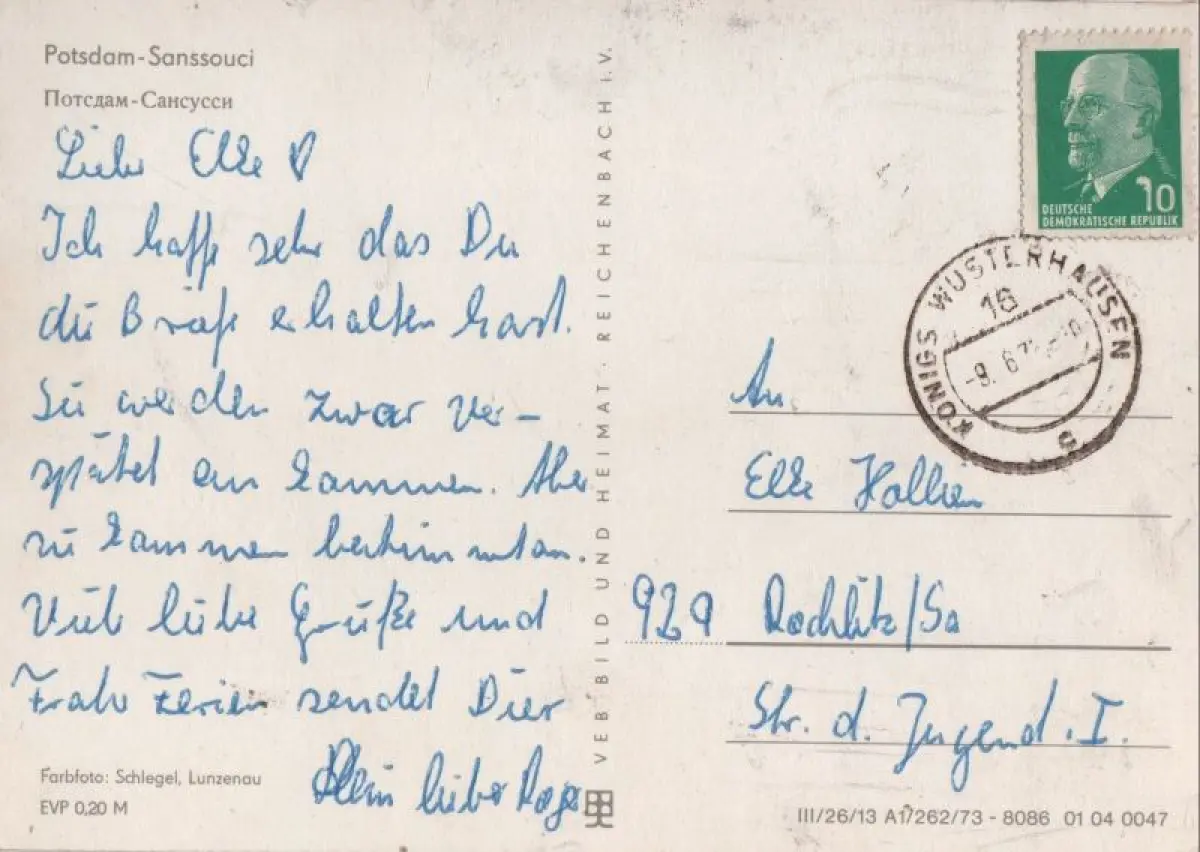 Potsdam-Sanssouci
Потсдам-Сансусси
Liebe Elke
Ich hoffe sehr das Du
die Briefe erhalten hast.
Sie werden zwar ver-
spätet an kommen. Aber
zu kommen bestimmt an.
Viele liebe Grüße und
Frohe Ferien sendet Dier
Dein lieber Roger
Farbfoto: Schlegel, Lunzenau
EVP 0,20 M
VEB BILD UND HEIMAT · REICHENBACH I.V.
10
DEUTSCHE
DEMOKRATISCHE REPUBLIK
KÖNIGS WUSTERHAUSEN
16
-9. 6
An
Elke
Rochlitz/Sa
Str. d. Jugend. I.
III/26/13 A1/262/73 - 8086 01 04 0047